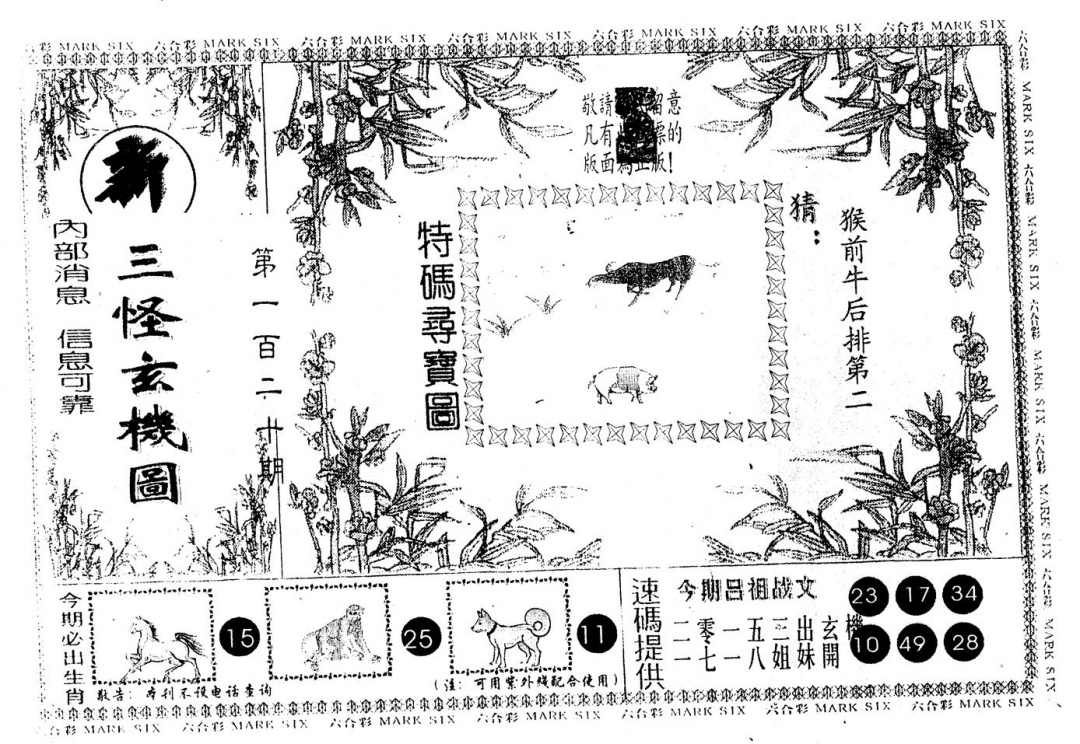 六合彩 MARK SIX 六合彩 MARK SIX 六合彩 MARK SIX 六合彩 MARK SIX 六合彩 MARK SIX 六合彩 MARK SIX 六合彩 MARK SIX
新
三怪玄機圖
內部消息 信息可靠
第一百二十期
敬請 留意
凡有 的
版面為正版!
特碼尋寶圖
猜:
猴前牛后排第二
今期必出生肖
15
25
11
敬告: 本刊不设电话查询
(注: 可用紫外线配合使用)
速碼提供
今期吕祖战文
二零一五三出玄機
一七一八姐妹開
23 17 34
10 49 28
六合彩 MARK SIX 六合彩 MARK SIX 六合彩 MARK SIX 六合彩 MARK SIX 六合彩 MARK SIX
六合彩 MARK SIX 六合彩 MARK SIX 六合彩 MARK SIX 六合彩 MARK SIX 六合彩 MARK SIX 六合彩 MARK SIX 六合彩 MARK SIX